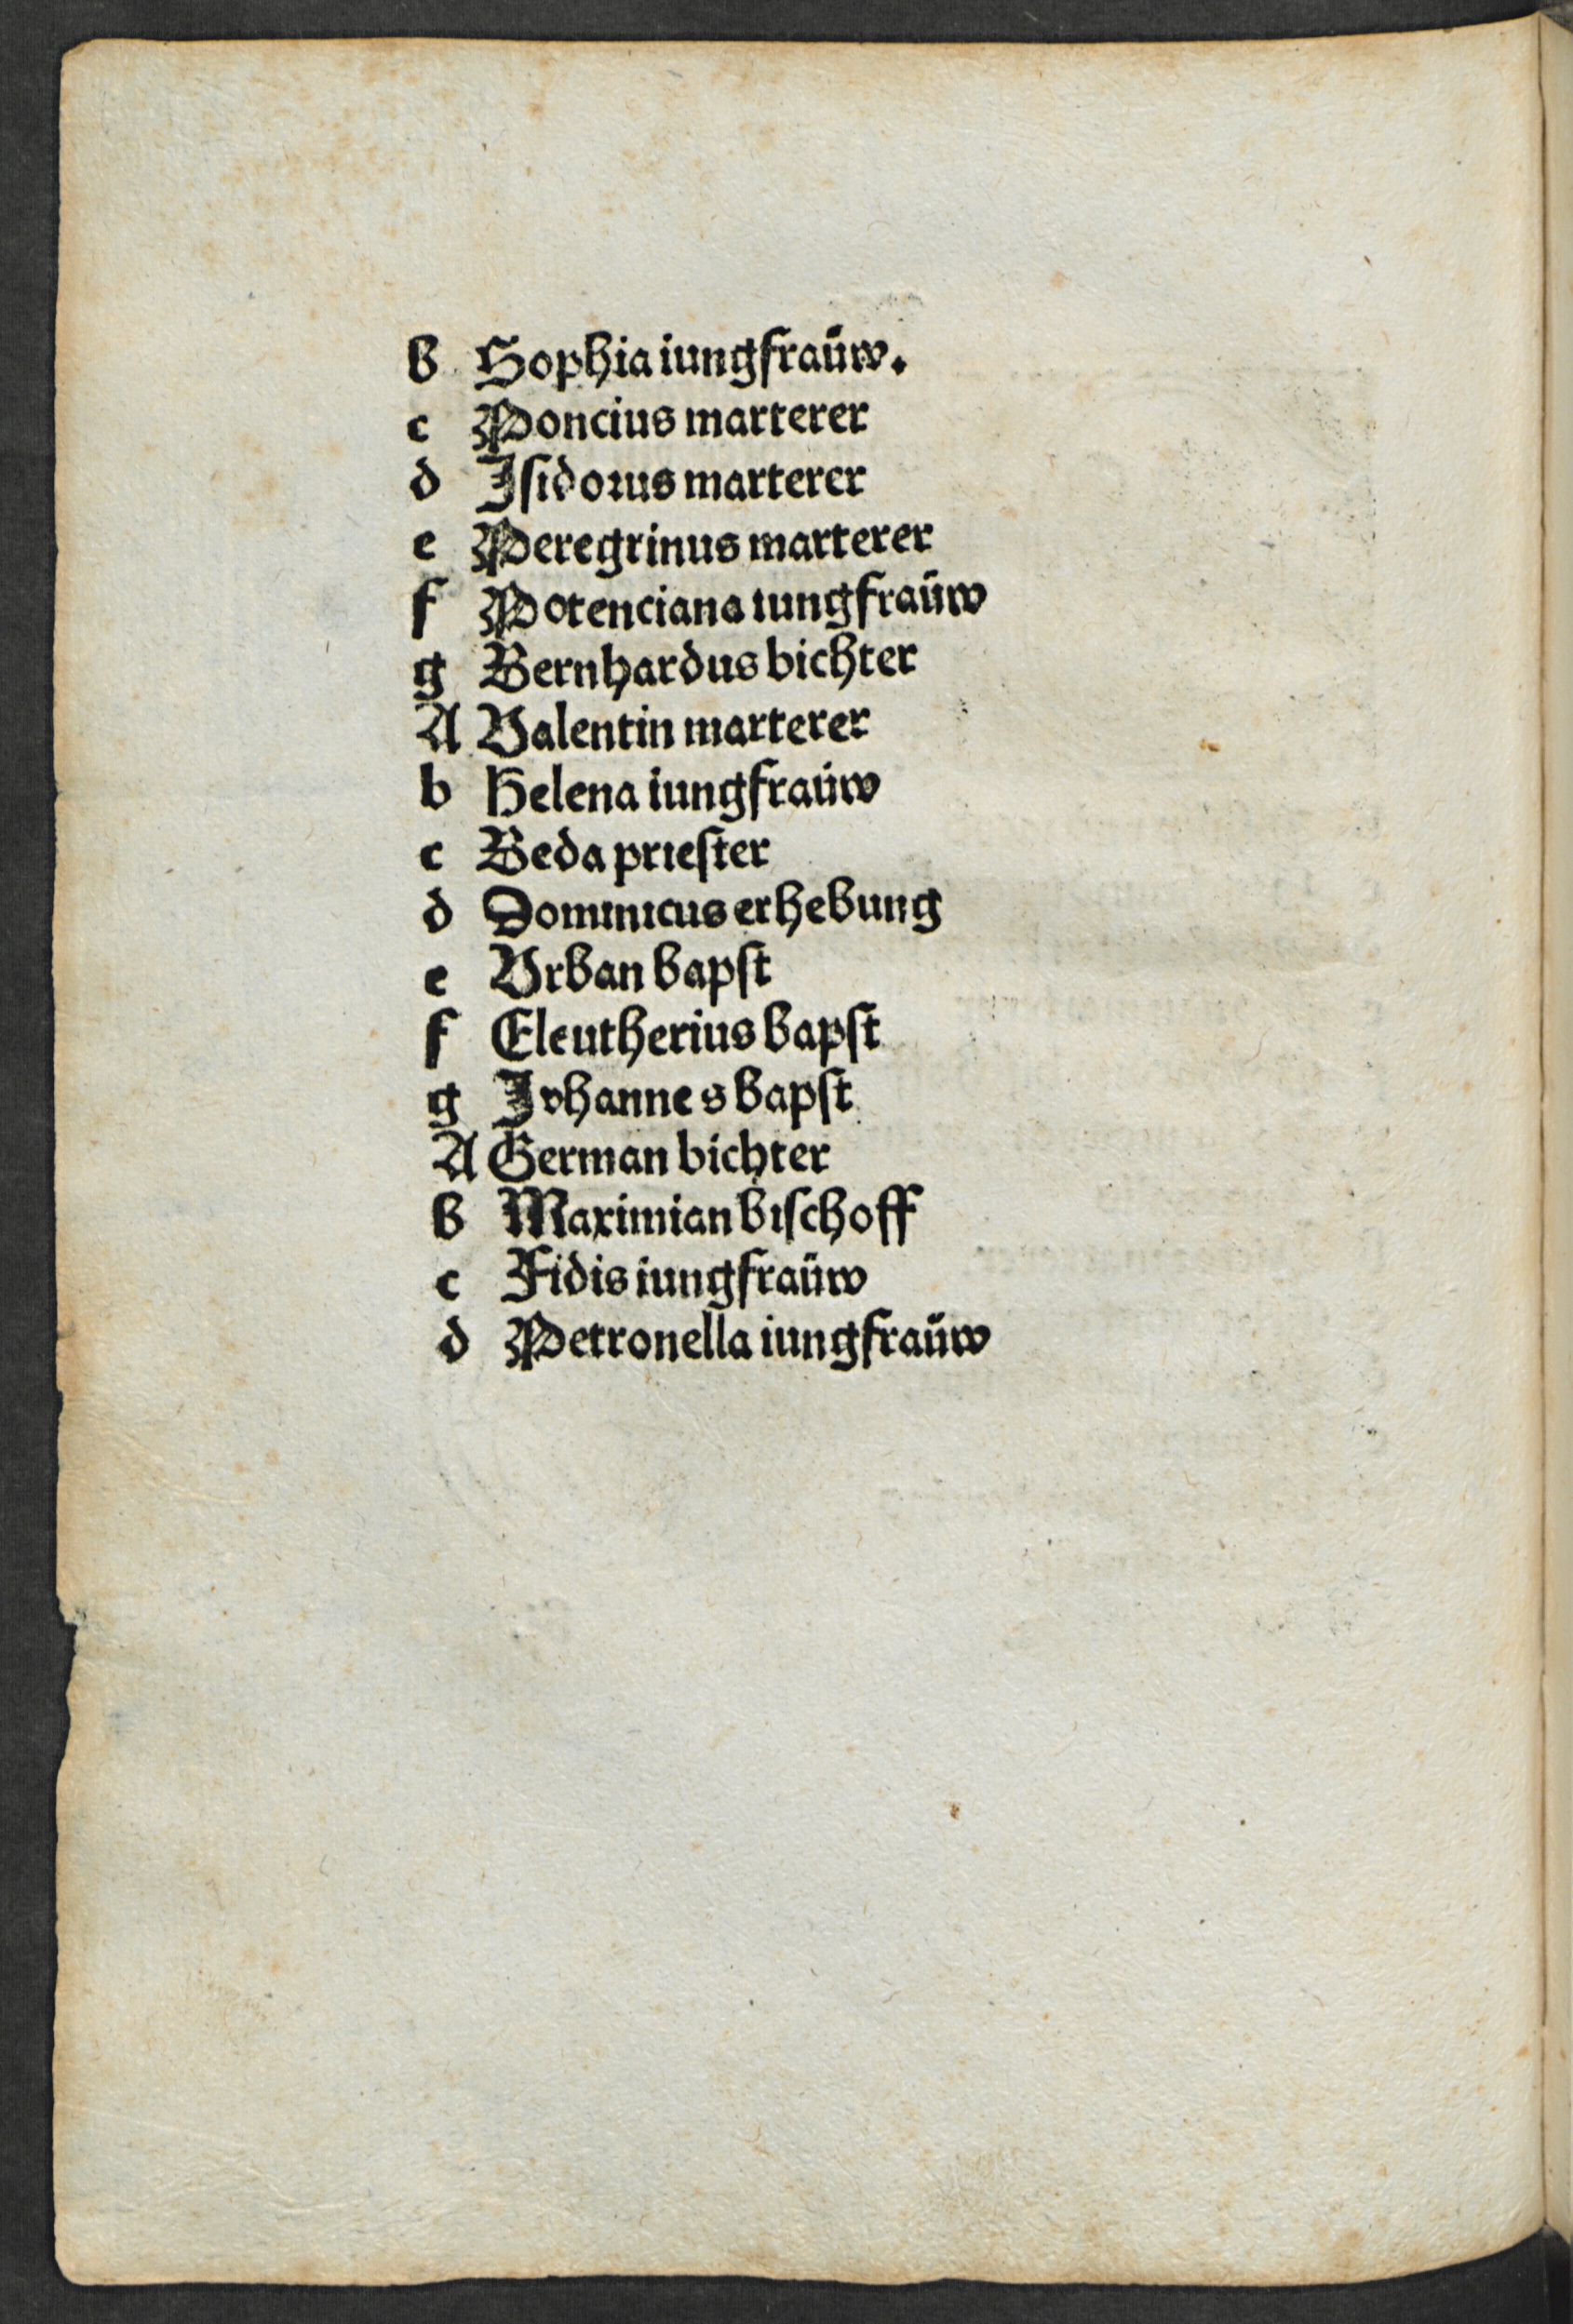 b Sophia iungfraüw.
c Poncius marterer
d Isidorus marterer
e Peregrinus marterer
f Potenciana iungfraüw
g Bernhardus bichter
A Valentin marterer
b Helena iungfraüw
c Beda priester
d Dominicus erhebung
e Vrban bapst
f Eleutherius bapst
g Johannes bapst
A German bichter
b Maximian bischoff
c Fidis iungfraüw
d Petronella iungfraüw